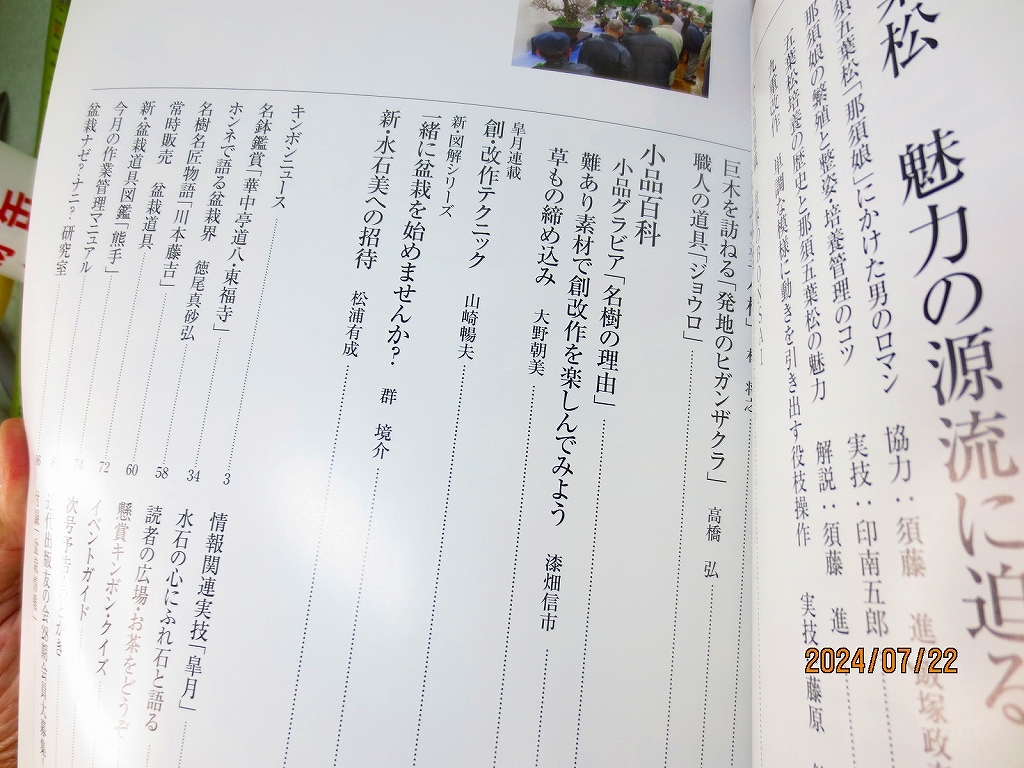 魅力の源流に迫る
須五葉松「那須娘」にかけた男のロマン
協力：須藤 進
那須娘の繁殖と整姿・培養管理のコツ
実技：印南五郎
五葉松培養の歴史と那須五葉松の魅力
解説：須藤 進
単調な模様に動きを引き出す役枝操作
実技 藤原
巨木を訪ねる「発地のヒガンザクラ」 高橋 弘
職人の道具「ジョウロ」
小品百科
小品グラビア「名樹の理由」
難あり素材で創改作を楽しんでみよう 漆畑信市
草もの締め込み 大野朝美
皐月連載
創・改作テクニック 山崎暢夫
新・図解シリーズ
一緒に盆栽を始めませんか？ 群 境介
新・水石美への招待 松浦有成
キンボンニュース
名鉢鑑賞「華中亭道八・東福寺」 3
ホンネで語る盆栽界 徳尾真砂弘 34
名樹名匠物語「川本藤吉」 58
常時販売 盆栽道具 60
新・盆栽道具図鑑「熊手」 72
今月の作業管理マニュアル 74
盆栽ナゼ・ナニ？研究室
情報関連実技「皐月」
水石の心にふれ石と語る
読者の広場・お茶をどうぞ
懸賞キンボン・クイズ
イベントガイド
2024/07/22